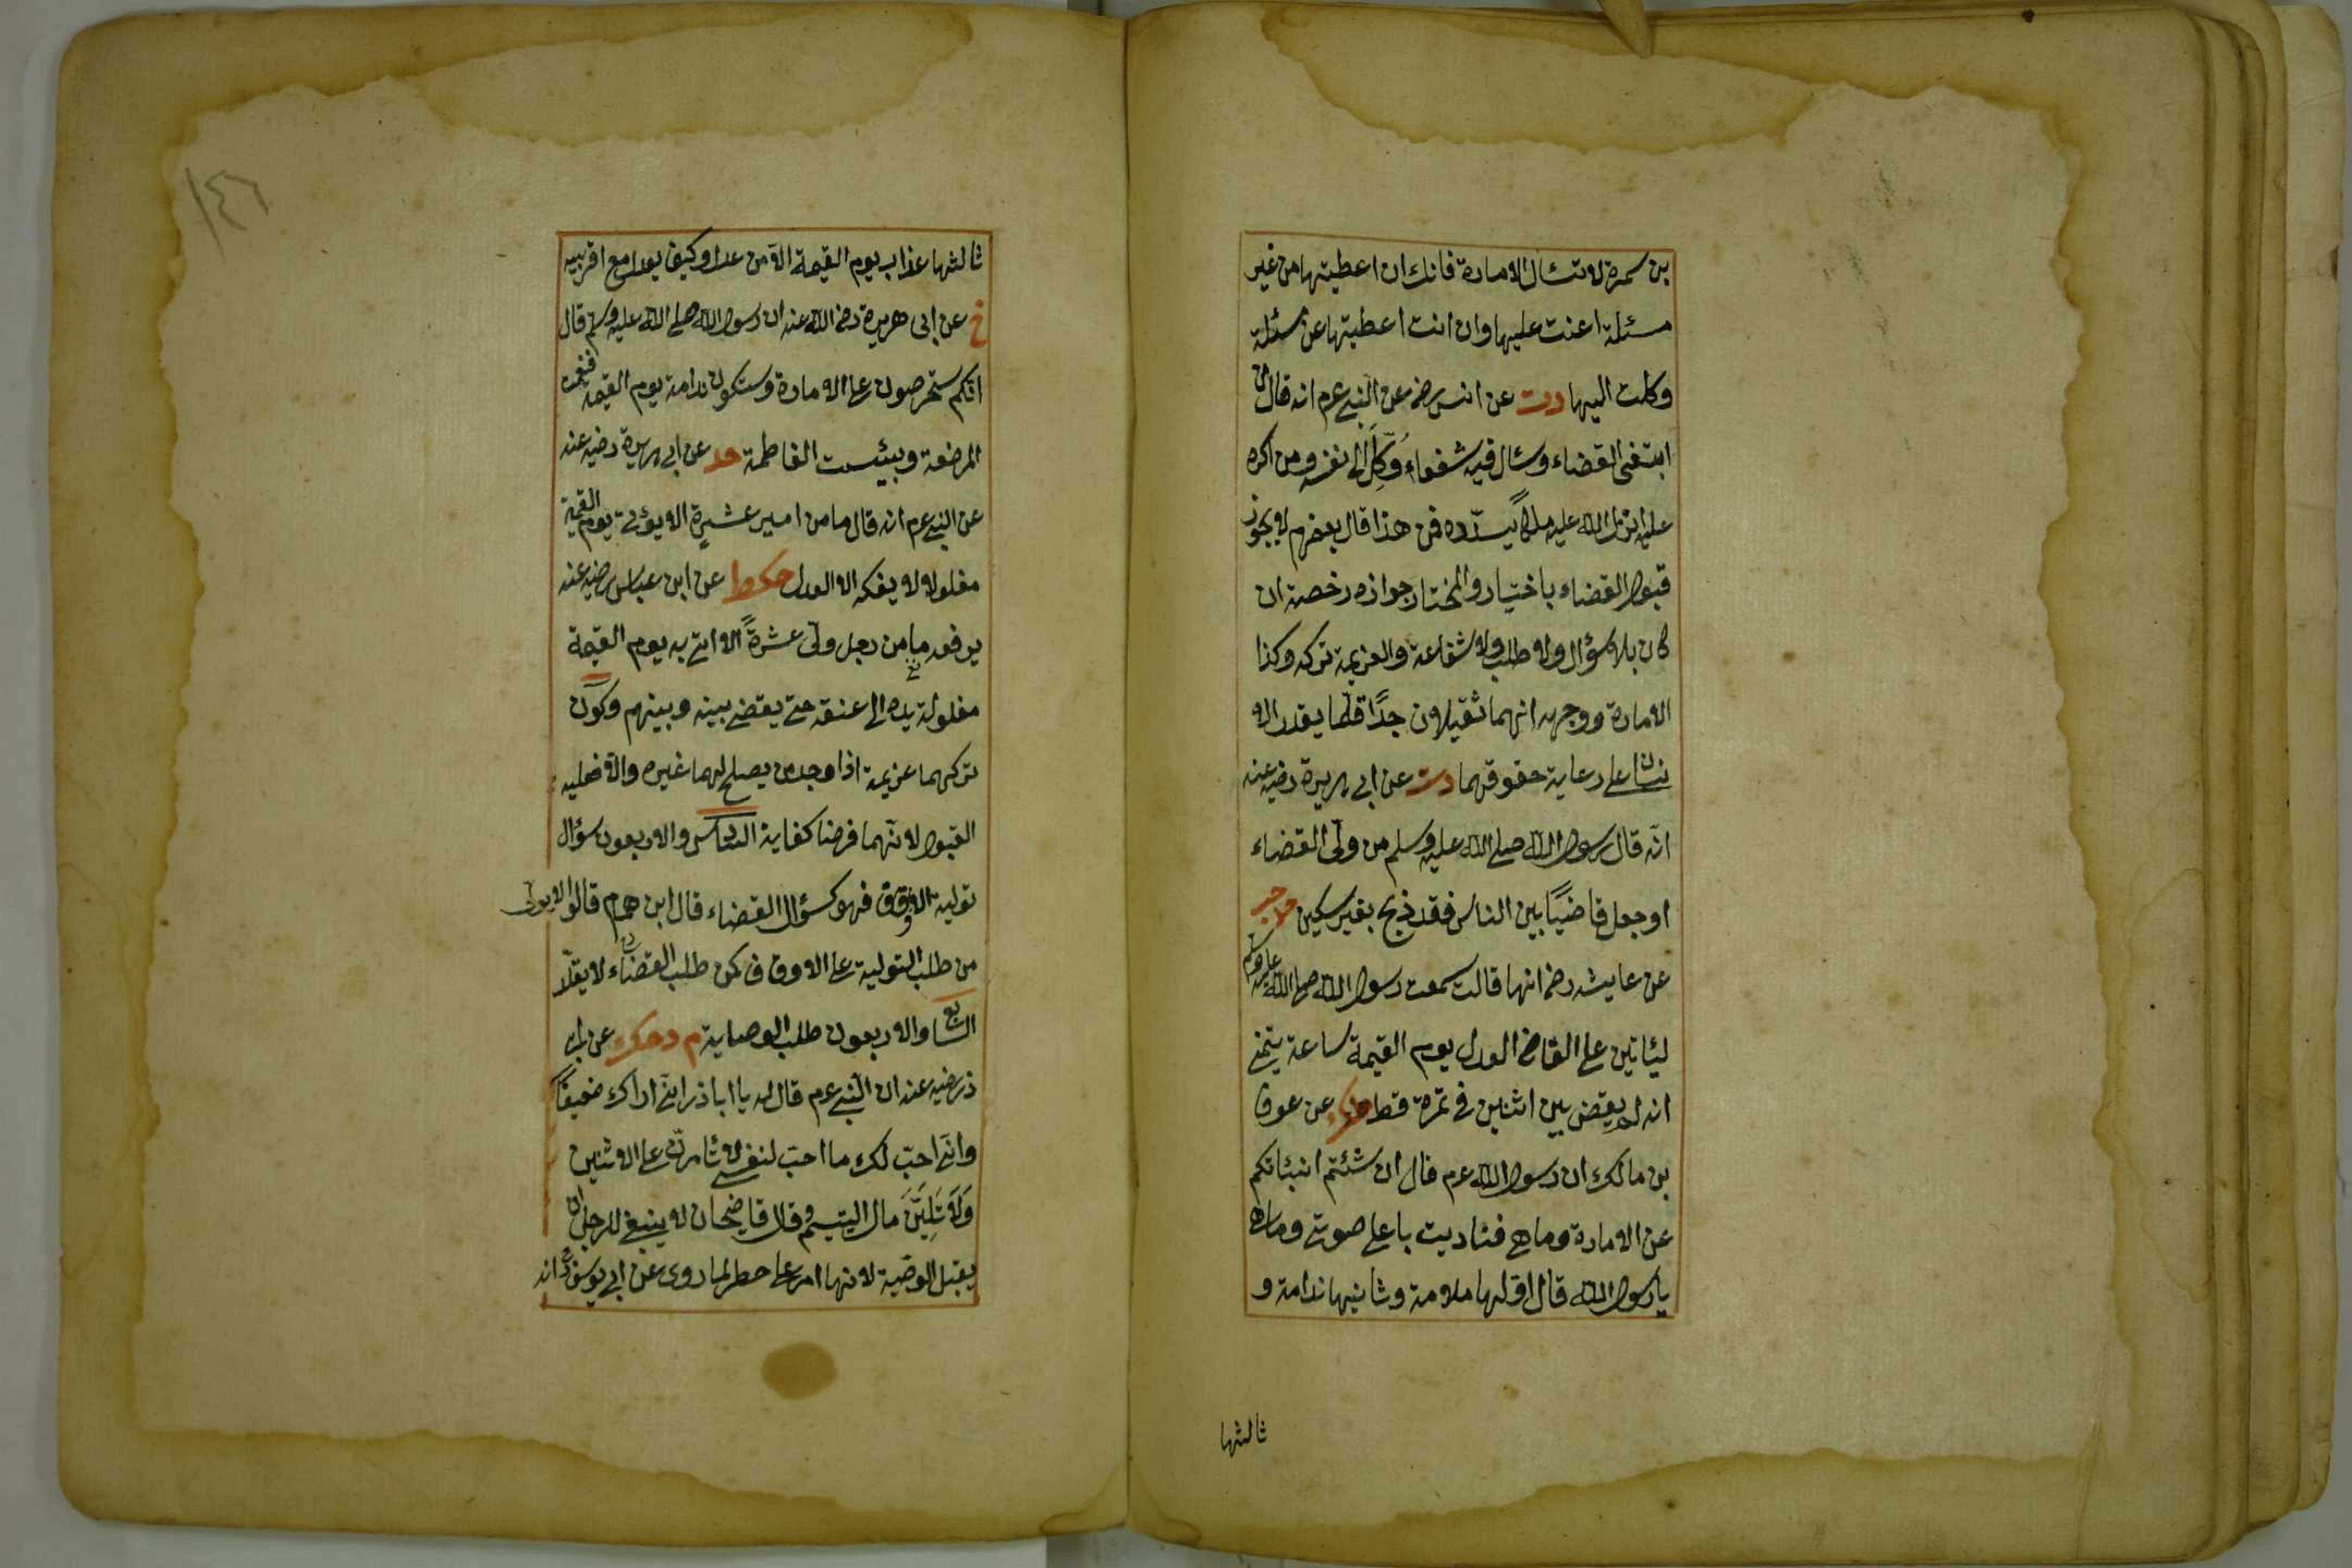 بن سمرة لا تسئال الامارة فانك ان اعطيتها من غير
مسئلة اعنت عليها وان انت اعطيتها عن مسئلة
وكلت اليها دت عن انس رضـ عن النبي عم انه قال من
ابتغى القضاء وسئال فيه شفعاء وُكِلَ الى نفسه ومن اكره
عليه انزل الله عليه ملكاً يسدّده فمن هذا قال بعضهم لا يجوز
قبول القضاء باختيار والمختار جوازه رخصة ان
كان بلا سؤال ولا طلب ولا شفاعة والعزيمة تركه وكذا
الامارة ووجهه انهما ثقيلان جدًا قلما يقدر الا
نسان على رعاية حقوقهما دت عن ابي هريرة رضيه عنه
انّه قال رسول الله صلى الله عليه وسلم من ولّى القضاء
او جعل قاضيًا بين الناس فقد ذبح بغير سكين حد حب
عن عايشه رضـ انها قالت سمعت رسول الله صلى الله عليه وسلم
ليئاتين على القاضى العدل يوم القيمة ساعة يتمنى
انه لم يقض بين اثنين فى تمرة قط عن عوف
بن مالك ان رسول الله عم قال ان شئتم انبئاتكم
عن الامارة وما هى فناديت باعلى صوتى وما هى
يا رسول الله قال اوّلها ملامة وثانيها ندامة و
ثالثها
١٤٦
ثالثها عذاب يوم القيمة الاّ من عدل وكيف يعدل مع اقربيه
خ عن ابى هريرة رضـ الله عنه ان رسول الله صلى الله عليه وسلم قال
انكم ستحرصون على الامارة وستكون ندامة يوم القيمة فنعمت
المرضعة وبئست الفاطمة حد عن ابى هريرة رضيه عنه
عن النبي عم انه قال ما من امير عشيرة الا يؤتى يوم القيمة
مغلولا لا يفكه الا العدل حكط عن ابن عباس رضيه عنه
يرفعه ما من رجل ولّى عشرةً الا اتى به يوم القيمة
مغلولة يده الى عنقه حتى يقضى بينه وبينهم وكون
تركهما عزيمة اذا وجد من يصلح لهما غيره والاّ فعليه
القبول لانّهما فرضا كفاية السادس والاربعون سؤال
تولية الاوقاف فهو كسؤال القضاء قال ابن همام قالوا لا يولّى
من طلب التولية على الاوقاف كمن طلب القضاء لا يقلّد
السابع والاربعون طلب الوصاية م دحك عن ابى
ذر رضيه عنه ان النبي عم قال له يا ابا ذر انّى اراك ضعيفًا
وانّى احبّ لك ما احبّ لنفسى لا تئامرنّ على الاثنين
وَلَا تَلِيَنَّ مال اليتيم وقال قاضيخان لا ينبغى للرجل ان
يقبل الوصية لانها امر على خطر لما روى عن ابى يوسف انه